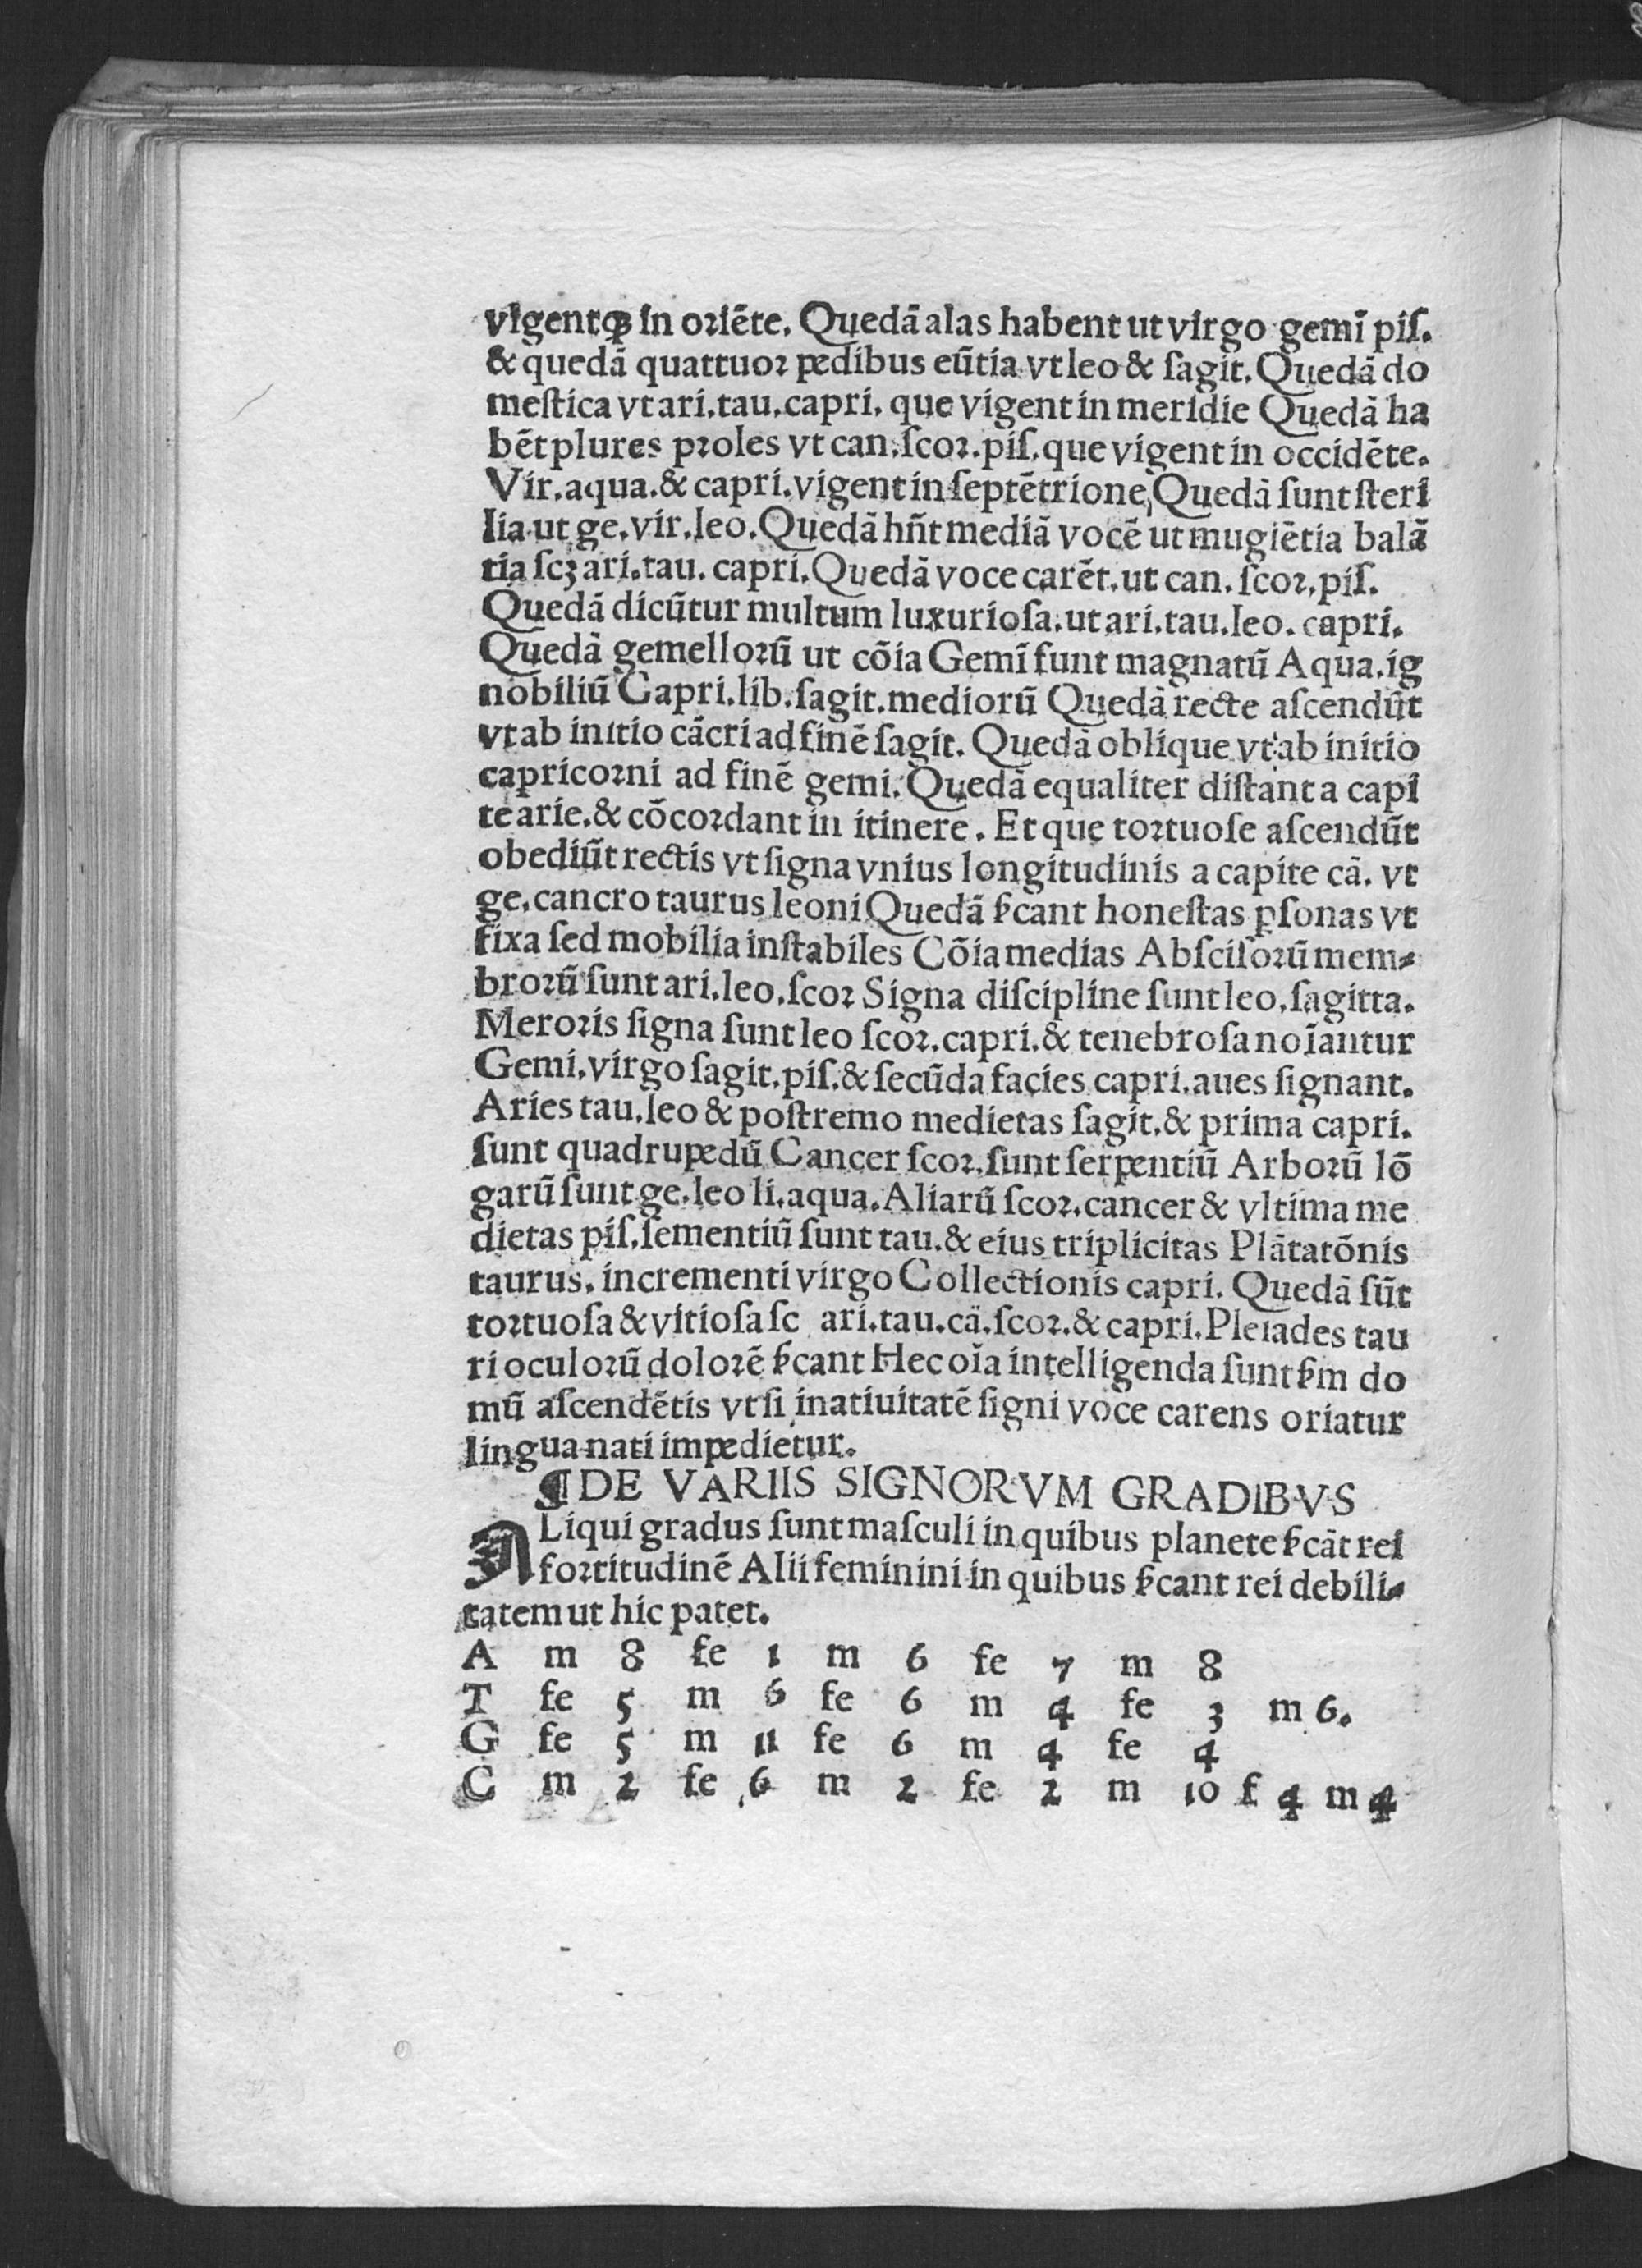 vigentqꝫ in oriēte. Quedā alas habent ut virgo gemī piſ.
& quedā quattuor pedibus eūtia vt leo & ſagit. Quedā do
meſtica vt ari. tau. capri. que vigent in meridie Quedā ha
bēt plures proles vt can. ſcor. piſ. que vigent in occidēte.
Vir. aqua. & capri. vigent in ſeptētrione, Quedā ſunt ſteri
lia ut ge. vir. leo. Quedā hñt mediā vocē ut mugiētia balā
tia ſcꝫ ari. tau. capri. Quedā voce carēt. ut can. ſcor. piſ.
Quedā dicūtur multum luxurioſa. ut ari. tau. leo. capri.
Quedā gemellorū ut cōia Gemī ſunt magnatū Aqua. ig
nobiliū Capri. lib. ſagit. mediorū Quedā recte aſcendūt
vt ab initio cācri ad finē ſagit. Quedā oblique vt ab initio
capricorni ad finē gemi. Quedā equaliter diſtant a capi
te arie. & cōcordant in itinere. Et que tortuoſe aſcendūt
obediūt rectis vt ſigna vnius longitudinis a capite cā. vt
ge. cancro taurus leoni Quedā ẜcant honeſtas ꝑſonas vt
fixa ſed mobilia inſtabiles Cōia medias Abſciſorū mem⸗
brorū ſunt ari. leo. ſcor Signa diſcipline ſunt leo. ſagitta.
Meroris ſigna ſunt leo ſcor. capri. & tenebroſa noīantur
Gemi. virgo ſagit. piſ. & ſecūda facies capri. aues ſignant.
Aries tau. leo & poſtremo medietas ſagit. & prima capri.
ſunt quadrupedū Cancer ſcor. ſunt ſerpentiū Arborū lō
garū ſunt ge. leo li. aqua. Aliarū ſcor. cancer & vltima me
dietas piſ. ſementiū ſunt tau. & eius triplicitas Plātatōnis
taurus. incrementi virgo Collectionis capri. Quedā ſūt
tortuoſa & vitioſa ſc ari. tau. cā. ſcor. & capri. Pleiades tau
ri oculorū dolorē ẜcant Hec oīa intelligenda ſunt ẜm do
mū aſcendētis vt ſi inatiuitatē ſigni voce carens oriatur
lingua nati impedietur.
¶DE VARIIS SIGNORVM GRADIBVS
ALiqui gradus ſunt maſculi in quibus planete ẜcāt rei
fortitudinē Alii feminini in quibus ẜcant rei debili⸗
tatem ut hic patet.
A m 8 fe 1 m 6 fe 7 m 8
T fe 5 m 6 fe 6 m 4 fe 3 m 6.
G fe 5 m 11 fe 6 m 4 fe 4
C m 2 fe 6 m 2 fe 2 m 10 f 4 m 4